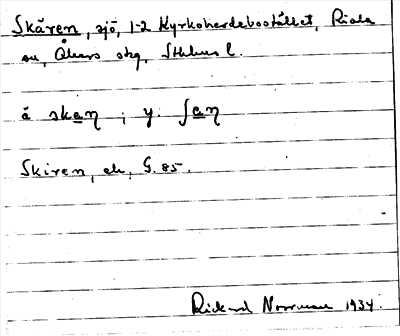 Skären, sjö, 1-2 Kyrkoherdebostället, Riala
sn, Åkers skg, Sthlms l.
ä skaŋ ; y. ʃaŋ
Skiren, ek, G. 85.
Rickard Norrman 1934.